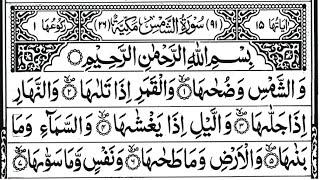 اٰیَاتُہَا ۱۵ (۹۱) سُوْرَۃُ الشَّمْسِ مَکِّیَّۃٌ (۲۶) رُکُوْعُہَا ۱
بِسْمِ اللّٰہِ الرَّحْمٰنِ الرَّحِیْمِ
وَالشَّمْسِ وَضُحٰىہَا ۪ۙ﴿۱﴾ وَالْقَمَرِ اِذَا تَلٰىہَا ۪ۙ﴿۲﴾ وَالنَّہَارِ
اِذَا جَلّٰىہَا ۪ۙ﴿۳﴾ وَالَّیْلِ اِذَا یَغْشٰىہَا ۪ۙ﴿۴﴾ وَالسَّمَآءِ وَمَا
بَنٰىہَا ۪ۙ﴿۵﴾ وَالْاَرْضِ وَمَا طَحٰىہَا ۪ۙ﴿۶﴾ وَنَفْسٍ وَّمَا سَوّٰىہَا ۪ۙ﴿۷﴾